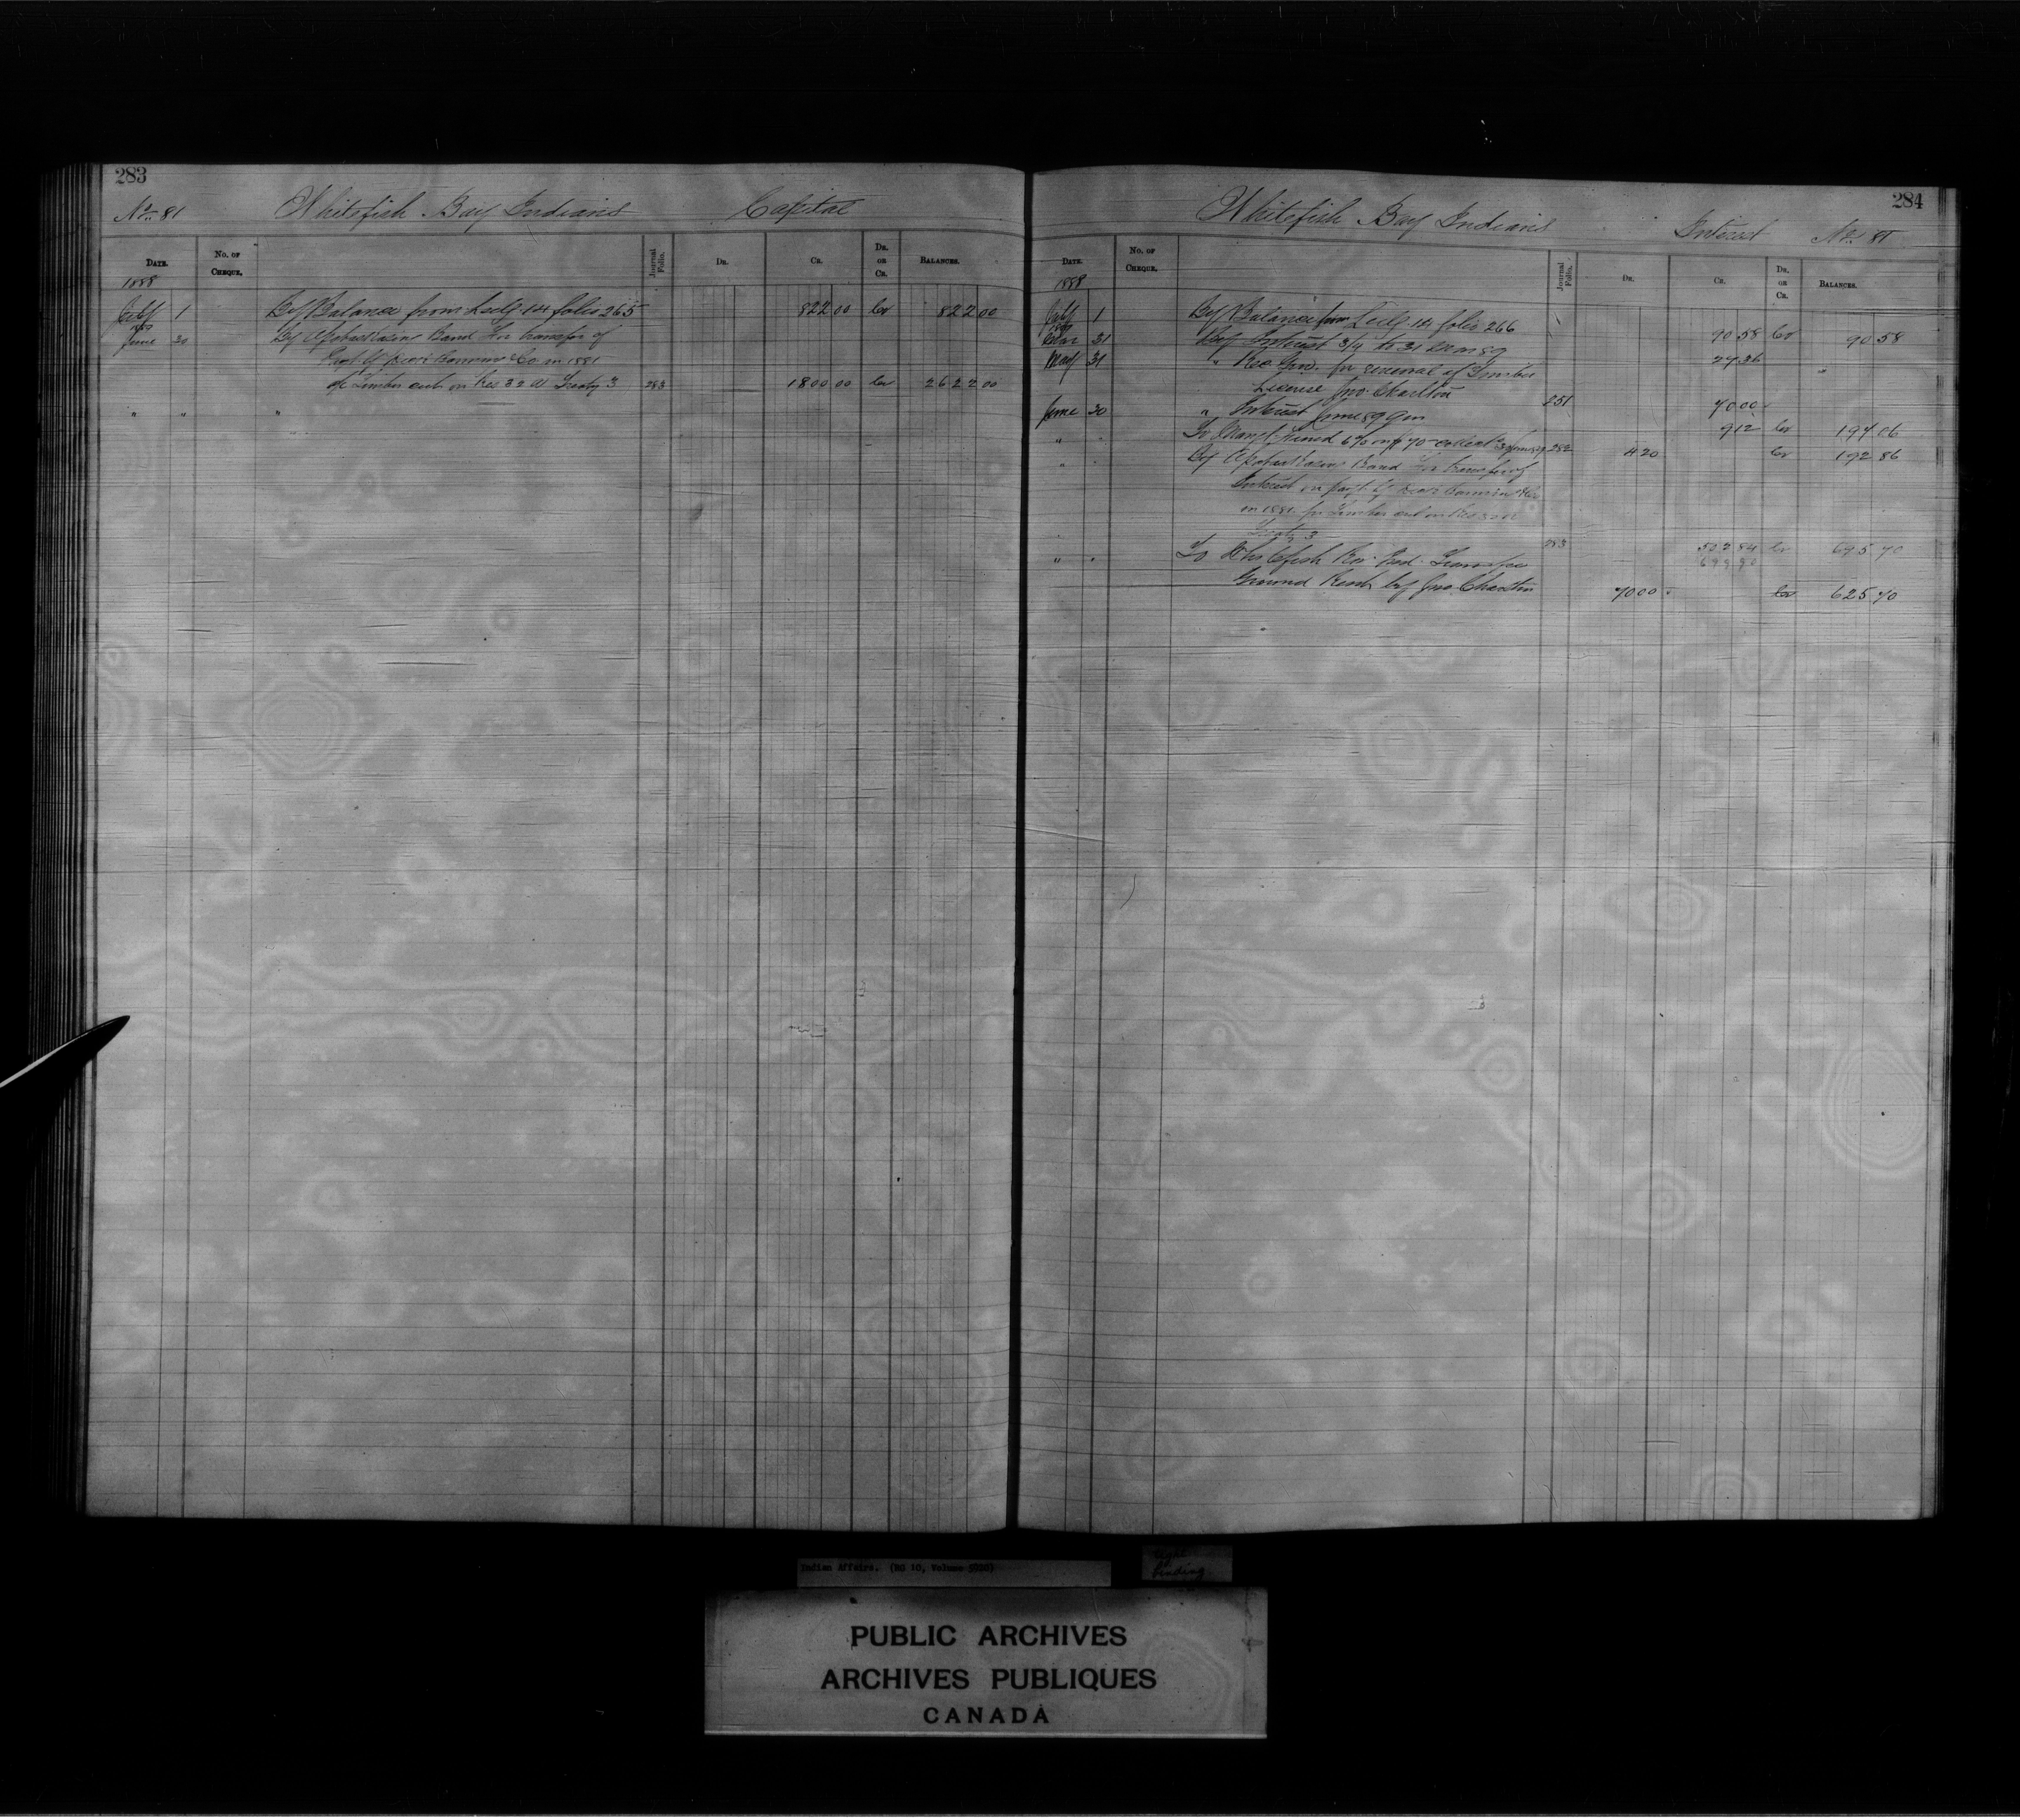 283
No. 81 Whitefish Bay Indians Capital
DATE. NO. OF CHEQUE. Journal Folio. DR. CR. DR. OR CR. BALANCES.
1888
July 1 By Balance from Ledg. 14 folio 265 822 00 Cr 822 00
June 30 By Band for transfer of
& Co in 1881
Timber cut on Res 32 A Treaty 3 283 1800 00 Cr 2622 00
" " "
284
Whitefish Bay Indians Interest No. 81
DATE. NO. OF CHEQUE. Journal Folio. DR. CR. DR. OR CR. BALANCES.
1888
July 1 By Balance from Ledg. 14 folio 266 90 58 Cr 90 58
31 By Interest to 31 27 36 "
May 31 " Rec. Gen. for renewal of Timber
License Jno. Charlton 251 70 00
June 30 " Interest June 89 9 12 Cr 197 06
" " To Fund 6% on $70 282 4 20 Cr 192 86
" " By Band for transfer of
Interest on
in 1881 for Timber cut on
Treaty 3 283 502 84 Cr 695 70
" " To Whitefish
Ground Rent by Jno. Charlton 70 00 Cr 625 70
Indian Affairs. (RG 10, Volume
binding
PUBLIC ARCHIVES
ARCHIVES PUBLIQUES
CANADA